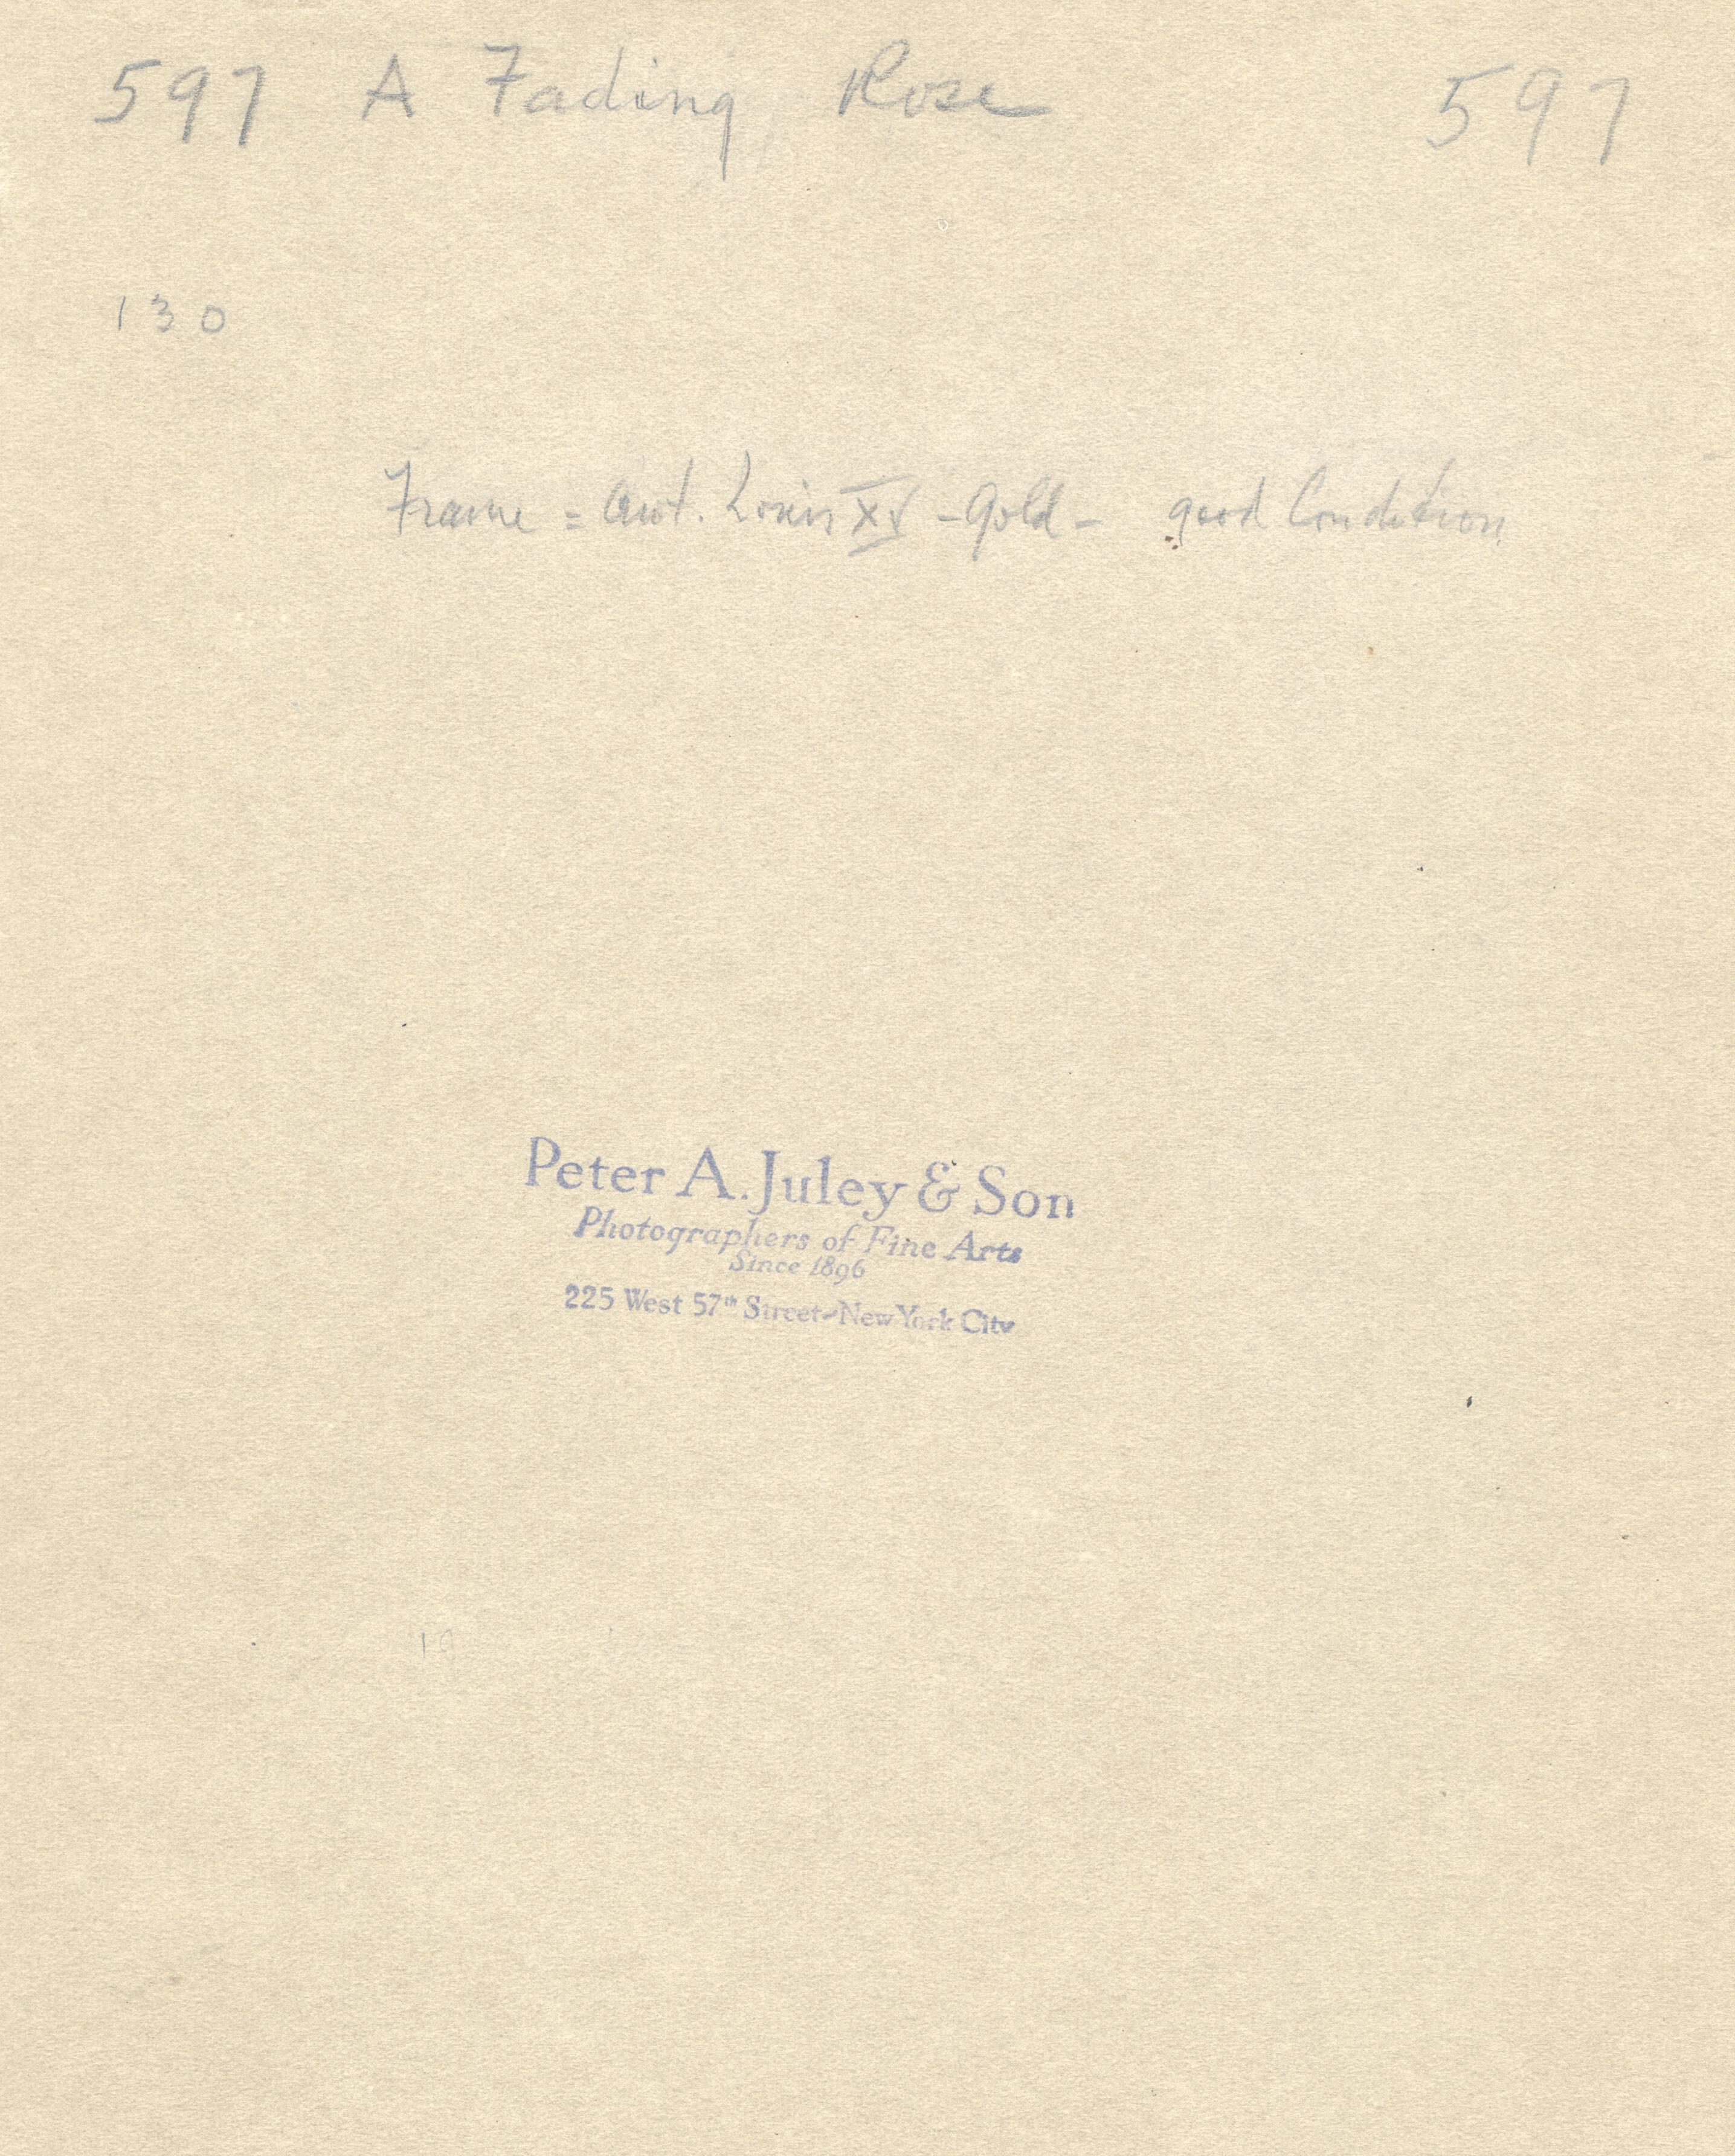 597 A Fading Rose 597
130
Frame = Ant. Louis XV - Gold - good Condition
Peter A. Juley & Son
Photographers of Fine Arts
Since 1896
225 West 57th Street-New York City